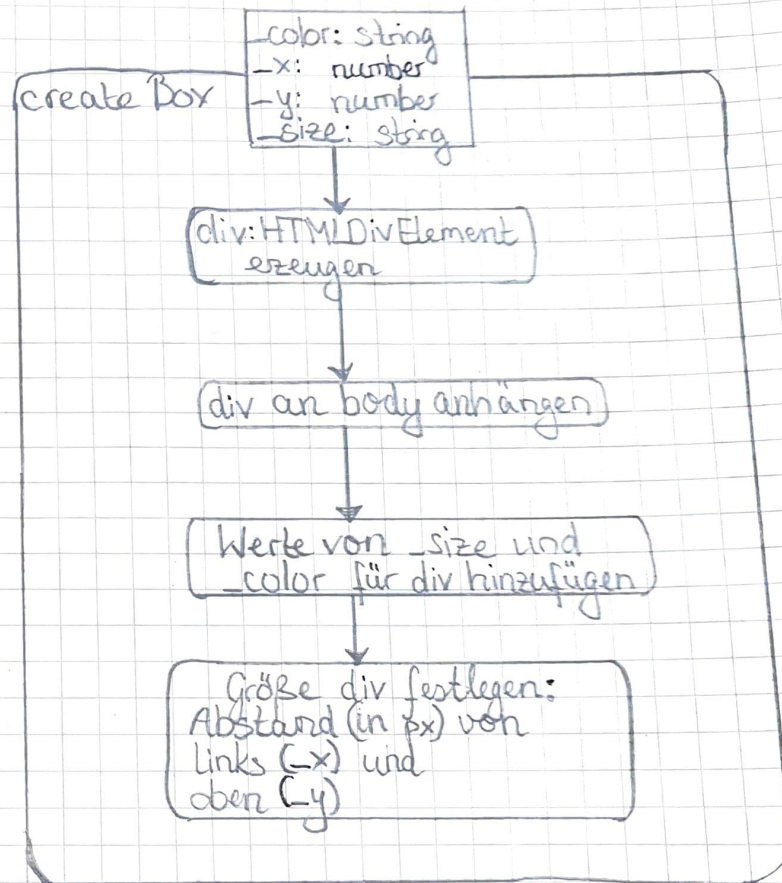 _color: string
_x: number
_y: number
_size: string
create Box
div: HTMLDivElement
erzeugen
div an body anhängen
Werte von _size und
_color für div hinzufügen
Größe div festlegen:
Abstand (in px) von
Links (_x) und
oben (_y)